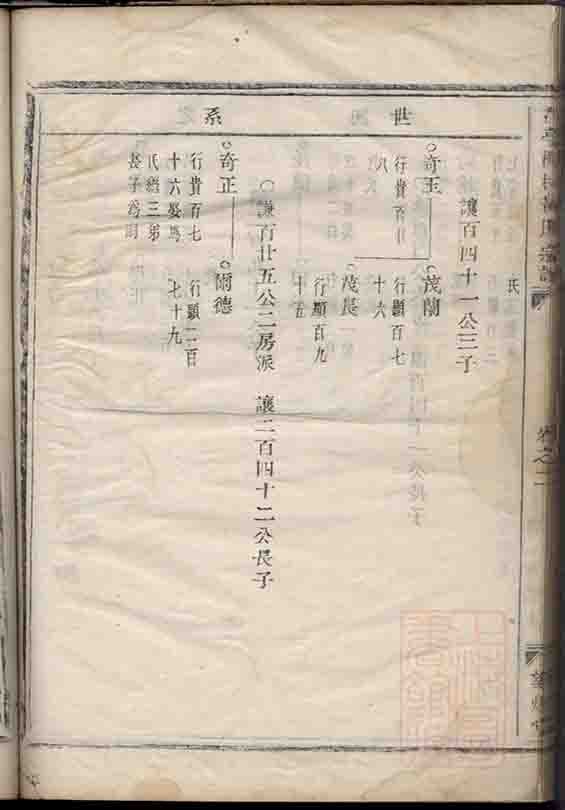 世系
讓百四十一公三子
奇玉
行貴百廿
八
茂蘭
行顯百七
十六
茂長
行顯百九
十五
謙百廿五公二房派 讓二百四十二公長子
奇正
行貴百七
十六娶馬
氏繼三弟
長子爲嗣
爾德
行顯二百
七十九
卷之二
氏